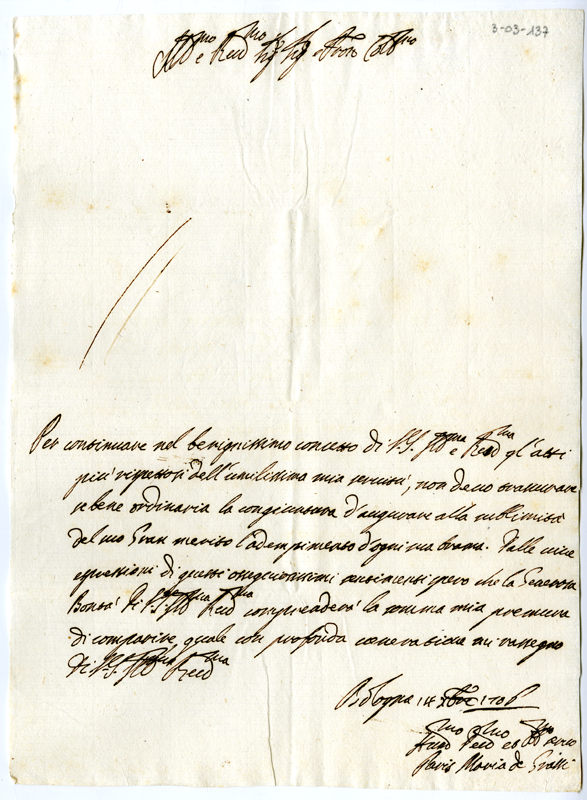 3-03-137
Ill.mo e Reu.mo Sig.r Sig.r e Pron Col.mo
Per continuare nel benignissimo concesso di V.S. Ill.ma e Reu.ma gl'atti
più rispettosi dell'umilissima mia seruitù, non deuo trascurare
se bene ordinaria la congiuntura d'augurare alla sublimità
del suo Gran merito l'adempimento d'ogni sua brama. Dalle
espressioni di questi ossequiosissimi sentimenti spero che la Generosa
Bontà di V.S. Ill.ma Reu.ma comprenderà la somma mia premura
di comparire, quale con profonda ueneratione mi rassegno
Di V.S. Ill.ma Reu.ma
Bologna 14 Xbre 1706
Paris Maria de Grassi